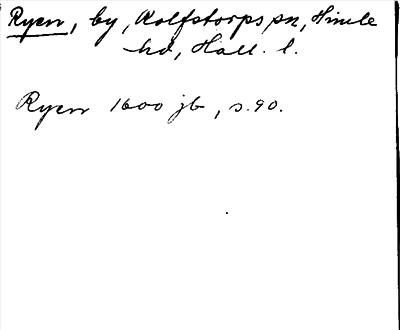 Ryen, by, Rolfstorps sn, Himle
hd, Hall. l.
Ryen 1600 jb, s. 90.